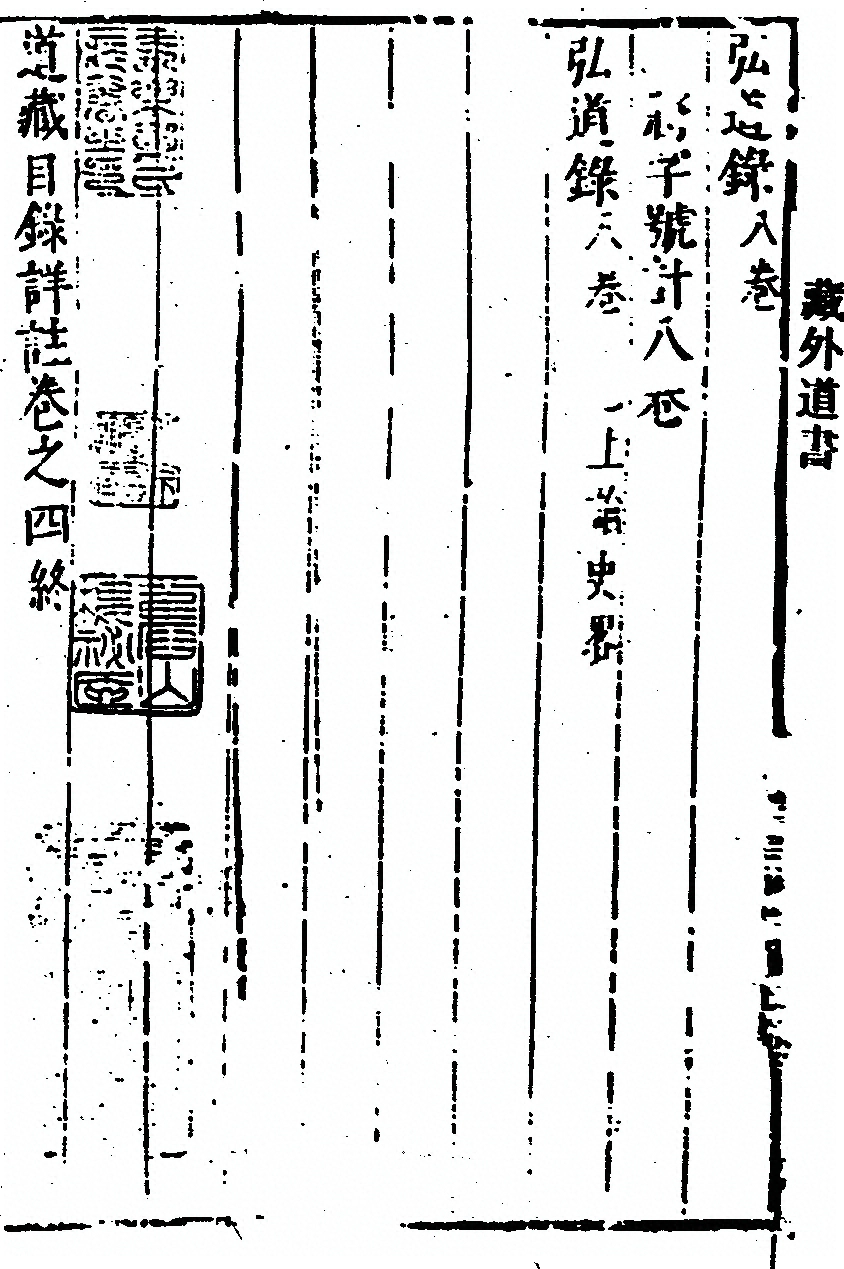 藏外道書
弘道錄八卷
字號計八卷
弘道錄八卷 上 史畧
道藏目錄詳註卷之四終